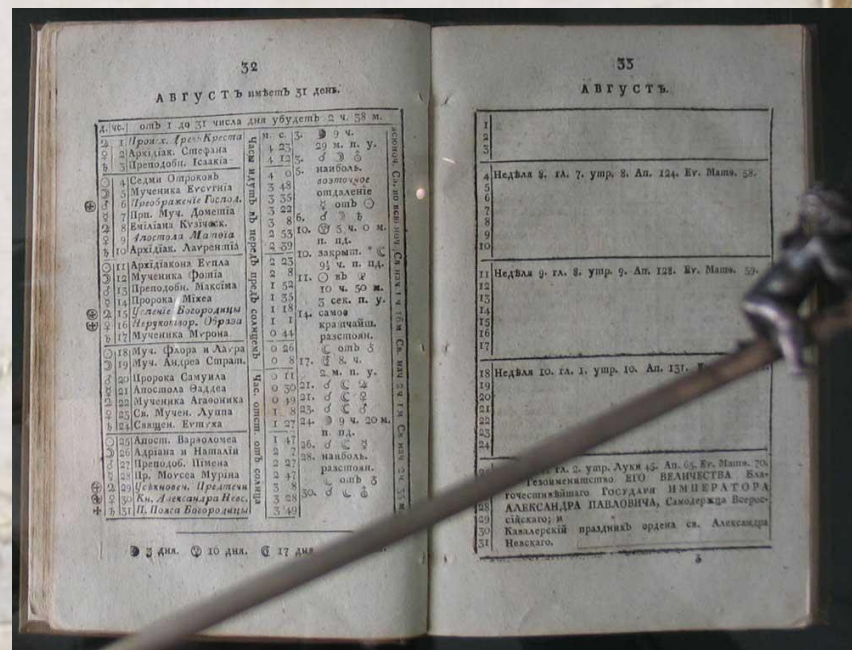 32
АВГУСТЪ имѣетъ 31 день.
д. чс. отъ 1 до 31 числа дня убудетъ 2 ч. 38 м.
м. с.
♃ 1 Проиcх. Древ. Креста 4 23
♀ 2 Архідіак. Стефана 4 12
♄ 3 Преподобн. Ісаакіа
☉ 4 Седми Отроковъ 4 0
☽ 5 Мученика Еvсvгніа 3 48
♂ 6 Преображеніе Господ. 3 35
☿ 7 Прп. Муч. Дометіа 3 22
♃ 8 Емиліана Кvзическ. 3 8
♀ 9 Апостола Матѳіа 2 53
♄ 10 Архідіак. Лаvрентіа 2 39
☉ 11 Архідіакона Еvпла 2 23
☽ 12 Мученика Фотіа 2 8
♂ 13 Преподобн. Максіма 1 52
☿ 14 Пророка Міхеа 1 35
♃ 15 Успеніе Богородицы 1 18
♀ 16 Нерукотвор. Образа 1 1
♄ 17 Мученика Мvрона 0 44
☉ 18 Муч. Флора и Лаvра 0 26
☽ 19 Муч. Андреа Страт. 0 8
♂ 20 Пророка Самуила 0 11
☿ 21 Апостола Ѳаддеа 0 30
♃ 22 Мученика Агаѳоника 0 49
♀ 23 Св. Мучен. Луппа 1 8
♄ 24 Священ. Еvтvха 1 27
☉ 25 Апост. Варѳоломеа 1 47
☽ 26 Адріана и Наталіи 2 7
♂ 27 Преподоб. Пімена 2 27
☿ 28 Пр. Моvсеа Муріна 2 47
♃ 29 Усѣкновен. Предтечи 3 8
♀ 30 Кн. Александра Невс. 3 28
♄ 31 П. Пояса Богородицы 3 49
Часы идутъ въ передъ предъ солнцемъ
Час. отст. отъ солнца
3. 9 ч.
29 м. п. у.
3. ♂ ☽
5. наиболь.
восточное
отдаленіе
☿ отъ ☉
6. ♂ ☿ ♄
10. 5 ч. 0 м.
п. пд.
10. закрыт. * ☾
9½ ч. п. пд.
11. ☉ въ
10 ч. 50 м.
3 сек. п. у.
14. самое
кратчайш.
разстоян.
☾ отъ ♁
17. 8. ч.
2. м. п. у.
21. ♂ ☾ ♃
21. ♂ ☾ ♀
23. ♂ ☾ ♂
24. 9 ч. 20 м.
п. пд.
26. ♂ ☾ ☿
28. наиболь.
разстоян.
☾ отъ ♁
30. ♂ ☾
3 дня. 10 дня. 17 дня
33
АВГУСТЪ.
1
2
3
4 Недѣля 8. гл. 7. утр. 8. Ап. 124. Ev. Матѳ. 58.
5
6
7
8
9
10
11 Недѣля 9. гл. 8. утр. 9. Ап. 128. Ev. Матѳ. 59.
12
13
14
15
16
17
18 Недѣля 10. гл. 1. утр. 10. Ап. 131.
19
20
21
22
23
24
гл. 2. утр. Луки 45. Ап. 63. Ev. Матѳ. 70.
Тезоименитство ЕГО ВЕЛИЧЕСТВА Бла-
гочестивѣйшаго ГОСУДАРЯ ИМПЕРАТОРА
28 АЛЕКСАНДРА ПАВЛОВИЧА, Самодержца Всерос-
29 сійскаго; и
30 Кавалерскій праздникъ ордена св. Александра
31 Невскаго.